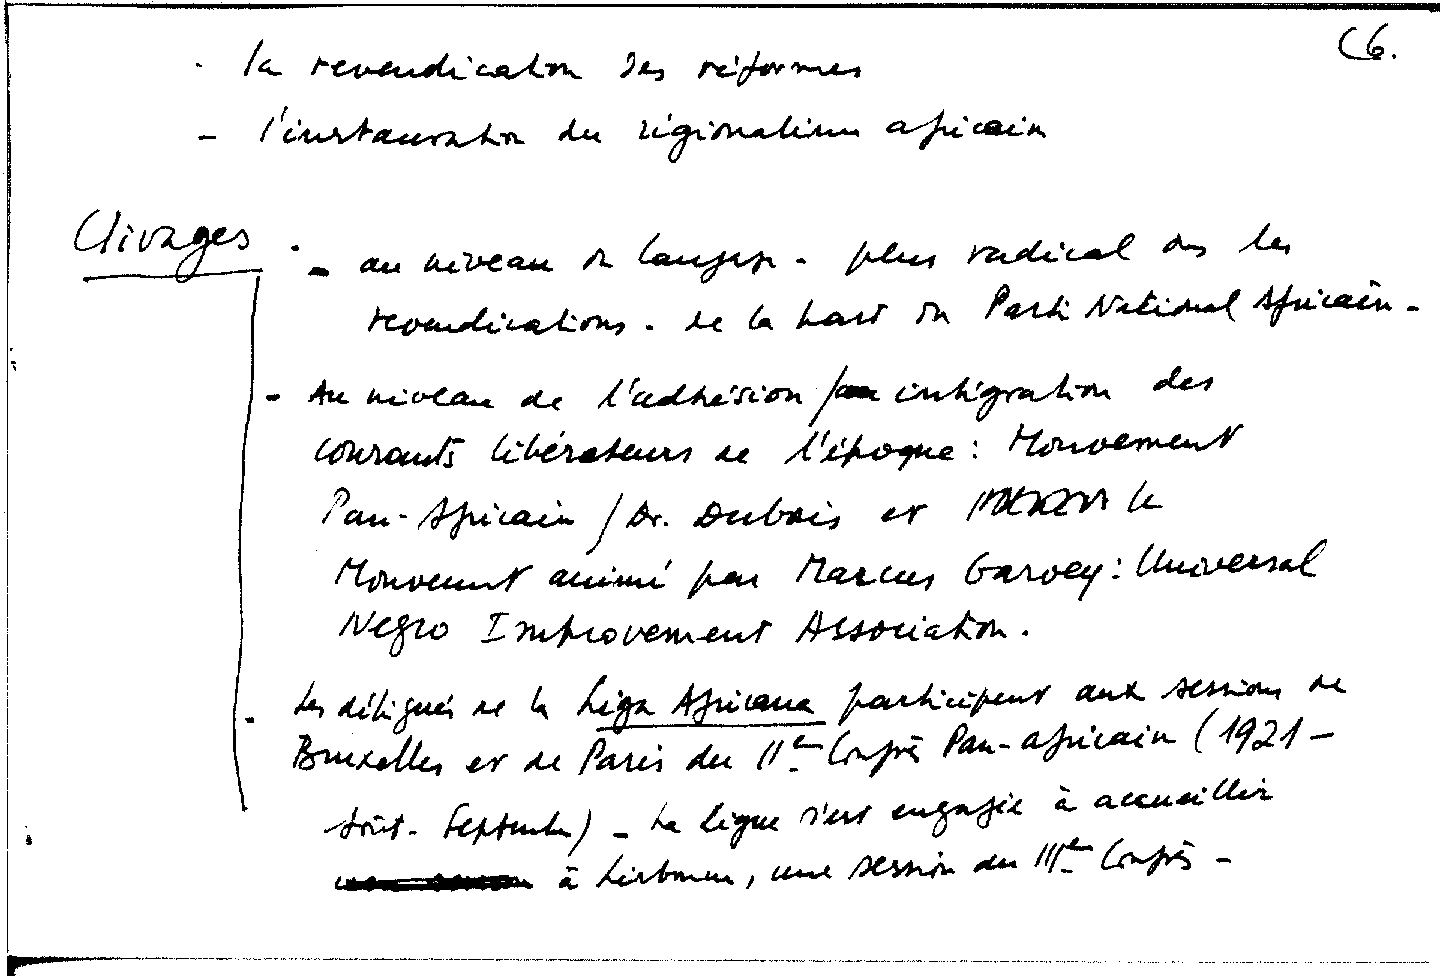 C6.
- la revendication des réformes
- l'instauration du régionalisme africain
Clivages
- au niveau du langage - plus radical dans les
revendications - de la part du Parti National Africain -
- Au niveau de l'adhésion / intégration des
courants libérateurs de l'époque : Mouvement
Pan-Africain / Dr. Dubois et le
Mouvement animé par Marcus Garvey : Universal
Negro Improvement Association.
- Les délégués de la Liga Africana participent aux sessions de
Bruxelles et de Paris du IIème Congrès Pan-africain (1921 -
Août - Septembre) - La Ligue s'est engagée à accueillir
à Lisbonne, une session du IIIème Congrès -